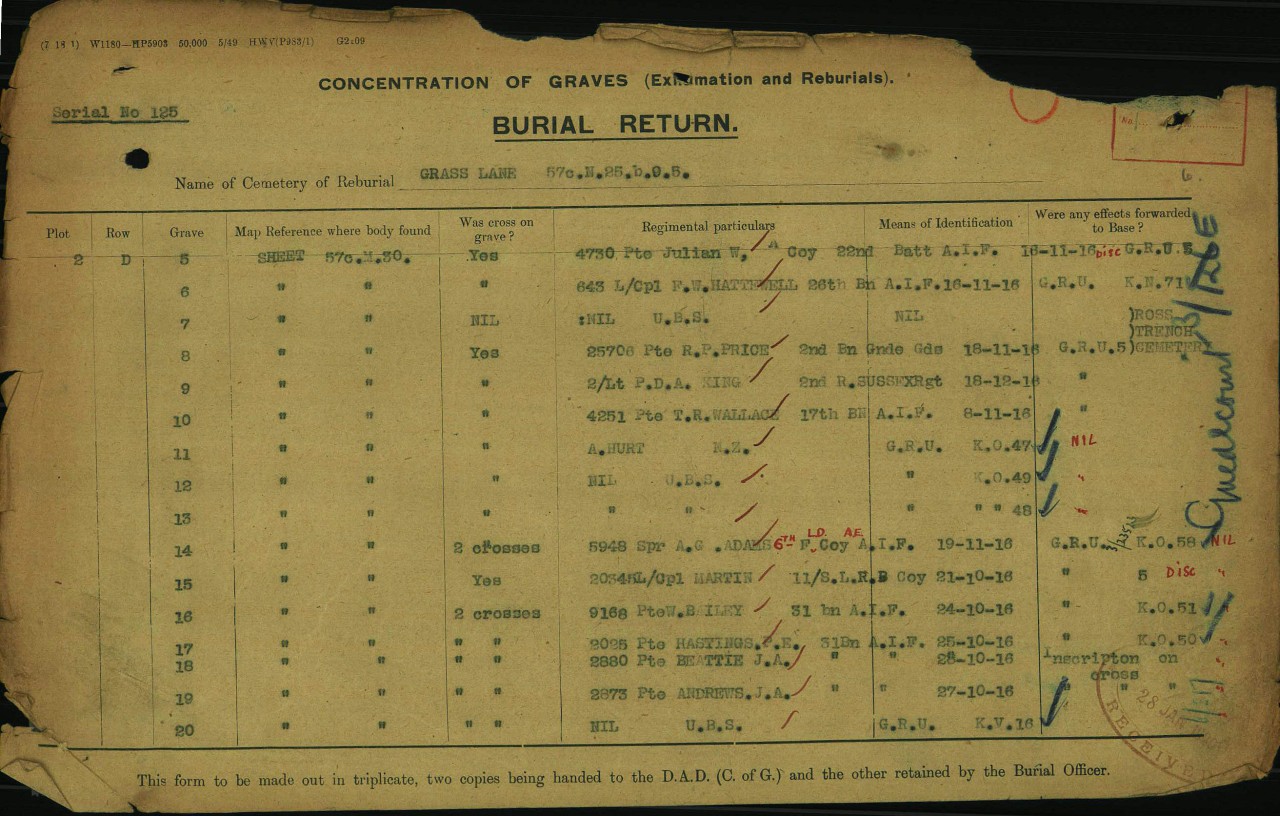 (7 16 1) W1180—HP5903 50,000 5/49 HWV(P983/1) G2209
CONCENTRATION OF GRAVES (Exhumation and Reburials).
Serial No 125
BURIAL RETURN.
No.
Name of Cemetery of Reburial GRASS LANE 57c.N.25.b.0.5.
6.
Plot Row Grave Map Reference where body found Was cross on grave? Regimental particulars Means of Identification Were any effects forwarded to Base?
2 D 5 SHEET 57c.M.30. Yes 4730 Pte Julian W, A Coy 22nd Batt A.I.F. 16-11-16 DISC G.R.U.5
6 " " " 643 L/Cpl F.W.HATTEWELL 26th Bn A.I.F.16-11-16 G.R.U. K.N.71
7 " " NIL :NIL U.B.S. NIL )ROSS
)TRENCH
8 " " Yes 25706 Pte R.P.PRICE 2nd Bn Gnde Gds 18-11-16 G.R.U.5)CEMETERY
9 " " " 2/Lt P.D.A. KING 2nd R.SUSSEXRgt 18-12-16 "
10 " " " 4251 Pte T.R.WALLACE 17th BN A.I.F. 8-11-16 "
11 " " " A.HURT N.Z. G.R.U. K.O.47 NIL
12 " " " NIL U.B.S. " K.O.49 "
13 " " " " " " " 48 "
14 " " 2 crosses 5948 Spr A.G.ADAMS 6TH F. LD. Coy AE. A.I.F. 19-11-16 G.R.U. K.O.58 NIL
15 " " Yes 20345L/Cpl MARTIN 11/S.L.R.B Coy 21-10-16 " 5 DISC "
16 " " 2 crosses 9168 PteW.BAILEY 31 bn A.I.F. 24-10-16 " K.O.51
17 " " " " 2025 Pte HASTINGS.P.E. 31Bn A.I.F. 25-10-16 " K.O.50 "
18 " " " " 2880 Pte BEATTIE J.A. " " 28-10-16 Inscripton on "
cross
19 " " " " 2873 Pte ANDREWS.J.A. " " 27-10-16 " " " "
20 " " " " NIL U.B.S. G.R.U. K.V.16
Guedecourt 3/26E
28 JAN
RECEIVED
This form to be made out in triplicate, two copies being handed to the D.A.D. (C. of G.) and the other retained by the Burial Officer.